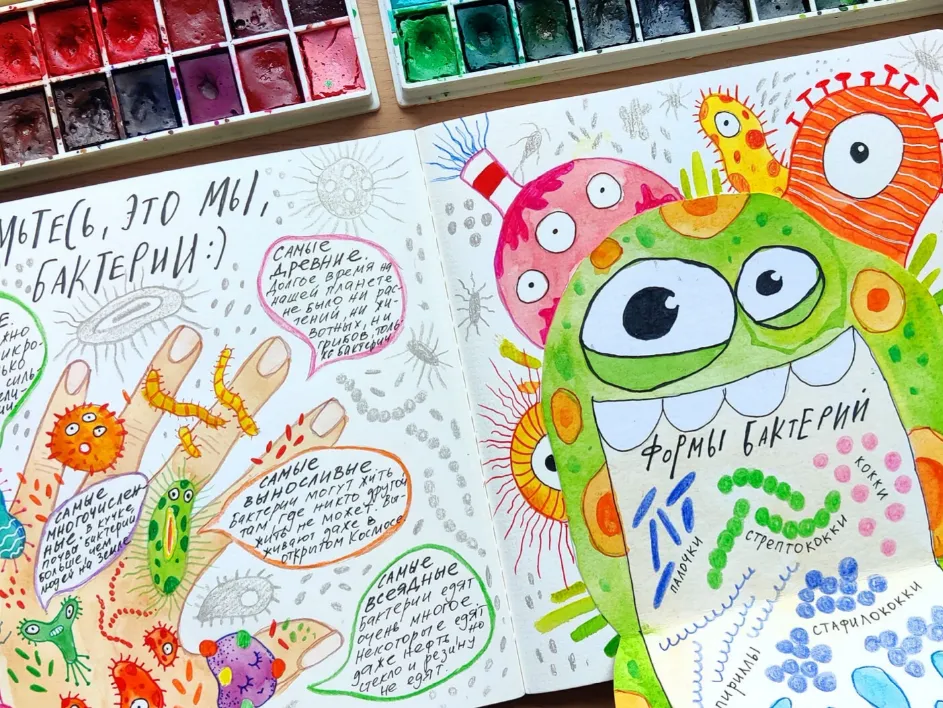 ЭТО МЫ,
БАКТЕРИИ:)
САМЫЕ
ДРЕВНИЕ.
ДОЛГОЕ ВРЕМЯ НА
НАШЕЙ ПЛАНЕТЕ
НЕ БЫЛО НИ РАС-
ТЕНИЙ, НИ ЖИ-
ВОТНЫХ, НИ
ГРИБОВ, ТОЛЬ-
КО БАКТЕРИИ
САМЫЕ
МНОГОЧИСЛЕН-
НЫЕ. В КУЧКЕ
ПОЧВЫ БАКТЕРИЙ
БОЛЬШЕ, ЧЕМ
ЛЮДЕЙ НА ЗЕМЛЕ
САМЫЕ
ВЫНОСЛИВЫЕ.
БАКТЕРИИ МОГУТ ЖИТЬ
ТАМ, ГДЕ НИКТО ДРУГОЙ
ЖИТЬ НЕ МОЖЕТ. ВЫ-
ЖИВАЮТ ДАЖЕ В
ОТКРЫТОМ КОСМОСЕ
САМЫЕ
ВСЕЯДНЫЕ
БАКТЕРИИ ЕДЯТ
ОЧЕНЬ МНОГОЕ,
НЕКОТОРЫЕ ЕДЯТ
ДАЖЕ НЕФТЬ, НО
СТЕКЛО И РЕЗИНУ
НЕ ЕДЯТ.
ФОРМЫ БАКТЕРИЙ
ПАЛОЧКИ
СТРЕПТОКОККИ
КОККИ
СТАФИЛОКОККИ